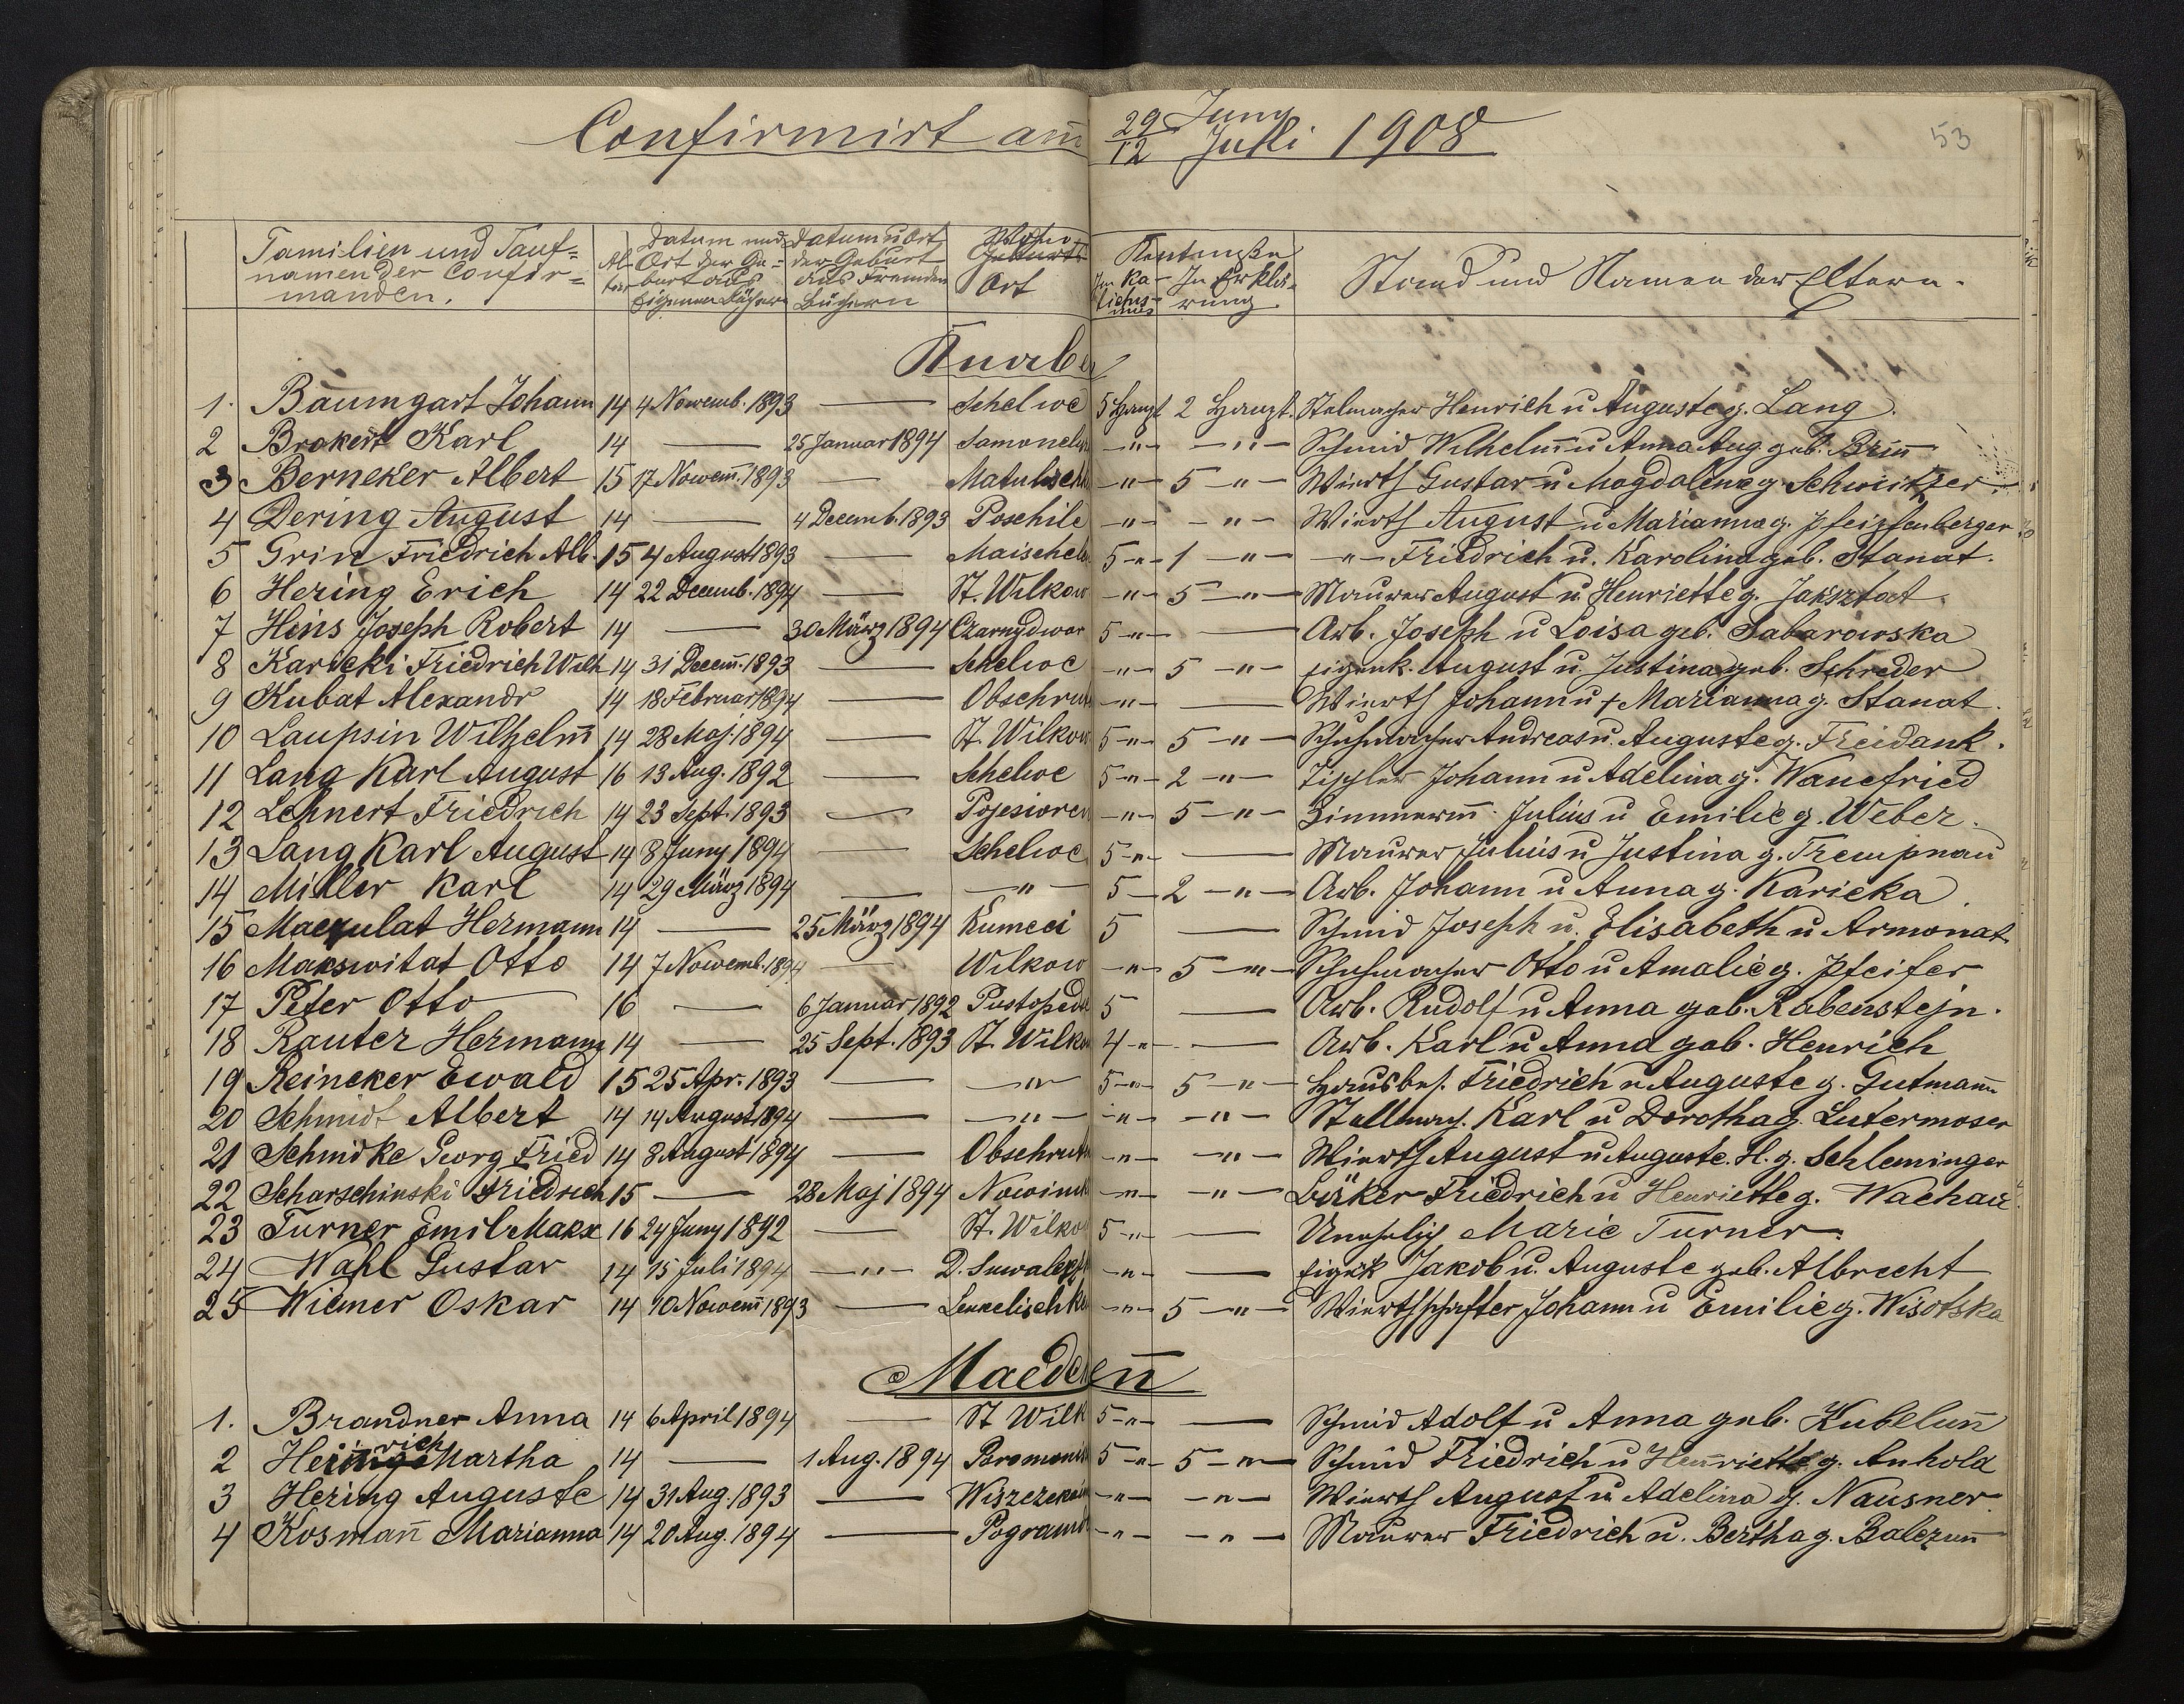 Confirmirt am̄ 29/12 Juny Julli 1908
53
Familien und Tauf=
namen der Confir=
manden.
Al-
ter
Datum und
Ort der Ge=
burt aus
Eigenen Büchern
Datum u Ort
der Geburt
aus Fremden
Büchern
Wohn-
Geburts-
Ort
Kentniße
Im Ka-
tichis-
mus
In Erklä-
rung
Stand und Namen der Eltern.
Knaben
1. Baumgart Johann 14 4 Nowemb. 1893 — Schelwe 5 Haupt 2 Haupt. Stelmacher Henrich u Auguste g. Lang.
2 Brokert Karl 14 — 25 Januar 1894 Samonel -"- -"- Schmid Wilhelm̄ u Anna Aug. geb. Brun̄
3 Berneker Albert 15 17 Nowem̄. 1893 — Matulisch -"- 5 -"- Wierth Gustav u Magdalena g. Schwitzer
4 Dering August 14 — 4 Decemb. 1893 Poschile -"- -"- Wierth August u Marianna g. Pfeiffenberger
5 Grin Friedrich Alb. 15 4 August 1893 — Maischel 5 -"- 1 -"- -"- Friedrich u. Karolina geb. Stanat.
6 Hering Erich 14 22 Decemb. 1894 — St. Wilkow -"- 5 -"- Maurer August u Henriette g. Jaksztat
7 Hins Joseph Robert 14 — 30 März 1894 Czarnydwor 5 -"- — Arb. Joseph u Loisa geb. Sabarowska
8 Karicki Friedrich Wilh 14 31 Decem̄. 1893 — Schelwe -"- 5 -"- Eigenk. August u. Justina geb. Schreder
9 Kubat Alexandr 14 18 Februar 1894 — Obschru -"- — Wierth Johann u + Marianna g. Stanat.
10 Laupsin Wilhelm̄ 14 28 Maj. 1894 — St. Wilkow 5 -"- 5 -"- Schuhmacher Andreas u. Auguste g. Freidank.
11 Lang Karl August 16 13 Aug. 1892 — Schelwe 5 -"- 2 -"- Tischler Johann u Adelina g. Wanefried
12 Lehnert Friedrich 14 23 Sept. 1893 — Pojesioren -"- 5 -"- Zimmerm̄. Julius u Emilie g. Weber.
13 Lang Karl August 14 8 Juny 1894 — Schelwe 5 -"- — Maurer Julius u Justina g. Trempnau
14 Miller Karl 14 29 März 1894 — -"- 5 — 2 -"- Arb. Johann u Anna g. Karicka.
15 Maczulat Hermann 14 — 25 März 1894 Kumeci 5 — Schmid Joseph u. Elisabeth u Armonat
16 Makswitat Otto 14 7 Nowemb. 1894 — Wilkow -"- 5 -"- Schuhmacher Otto u Amalie g. Pfeifer
17 Peter Otto 16 — 6 Januar 1892 Pustopede 5 — Arb. Rudolf u Anna geb. Rabenstejn.
18 Rauter Hermann 14 — 25 Sept. 1893 St. Wilkow 4 -"- — Arb. Karl u Anna geb. Henrich
19 Reineker Ewald 15 25 Apr. 1893 — -"- 5 -"- 5 -"- Hausbes. Friedrich u Auguste g. Gutman̄
20 Schmidt Albert 14 14 August 1894 — -"- -"- -"- Stellmach. Karl u Dorotha g. Lutermoser
21 Schmidke Georg Fried 14 8 August 1894 — Obschrut -"- -"- Wierth August u Auguste. H. g. Schleminger
22 Scharschinski Friedrich 15 — 28 Maj 1894 Nowinik -"- -"- Bäker Friedrich u Henriette g. Wachau
23 Turner Emil Makx 16 24 Juny 1892 — St. Wilkow 5 -"- — Unehelich Marie Turner.
24 Wahl Gustav 14 15 Juli 1894 -"- D. Suwalk -"- — Eigek Jakob u. Auguste geb. Albrecht
25 Wiemer Oskar 14 10 Nowem̄ 1893 — Lenkelischk -"- 5 -"- Wierthschafter Johann u Emilie g. Wisotska
Maedchen̄
1. Brandner Anna 14 6 April 1894 — St Wilk 5 -"- — Schmid Adolf u Anna geb. Kubelun̄
2 Heinrich Martha 14 — 1 Aug. 1894 Poromoni 5 -"- 5 -"- Schmid Friedrich u Hen̄riette g. Anhold
3 Hering Auguste 14 31 Aug. 1893 — Wiszczeka -"- -"- Wierth August u Adelina g. Nausner
4 Kosman̄ Marianna 14 20 Aug. 1894 — Pograum -"- -"- Maurer Friedrich u. Bertha g. Balczun̄